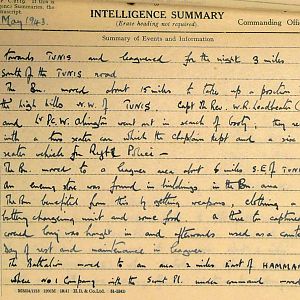 INTELLIGENCE SUMMARY
Commanding Offi
(Erase heading not required).
May 1943.
Summary of Events and Information
towards TUNIS and leaguered for the night 3 miles
South of the TUNIS road
The Bn. moved about 15 miles to take up a position
the high hills N.W. of TUNIS. Capt the Rev. W.R. Leadbeater C
and Lt P.C.W. Alington went out in search of booty, they re
with a two seater car which the chaplain kept and a six
seater vehicle for Right Police
The Bn. moved to a leaguer area about 6 miles S.E of TUNIS
An enemy store was found in buildings in the Bn. area
The Bn benefited from this by getting weapons, clothing a
battery changing unit and some food a tin to captured
covered lamp was bought in and afterwards used as a
Day of rest and maintenance in leaguer.
The Battalion moved to an area 2 miles East of HAMMAM
where No 1 Company with the Scout Pl. under command moved